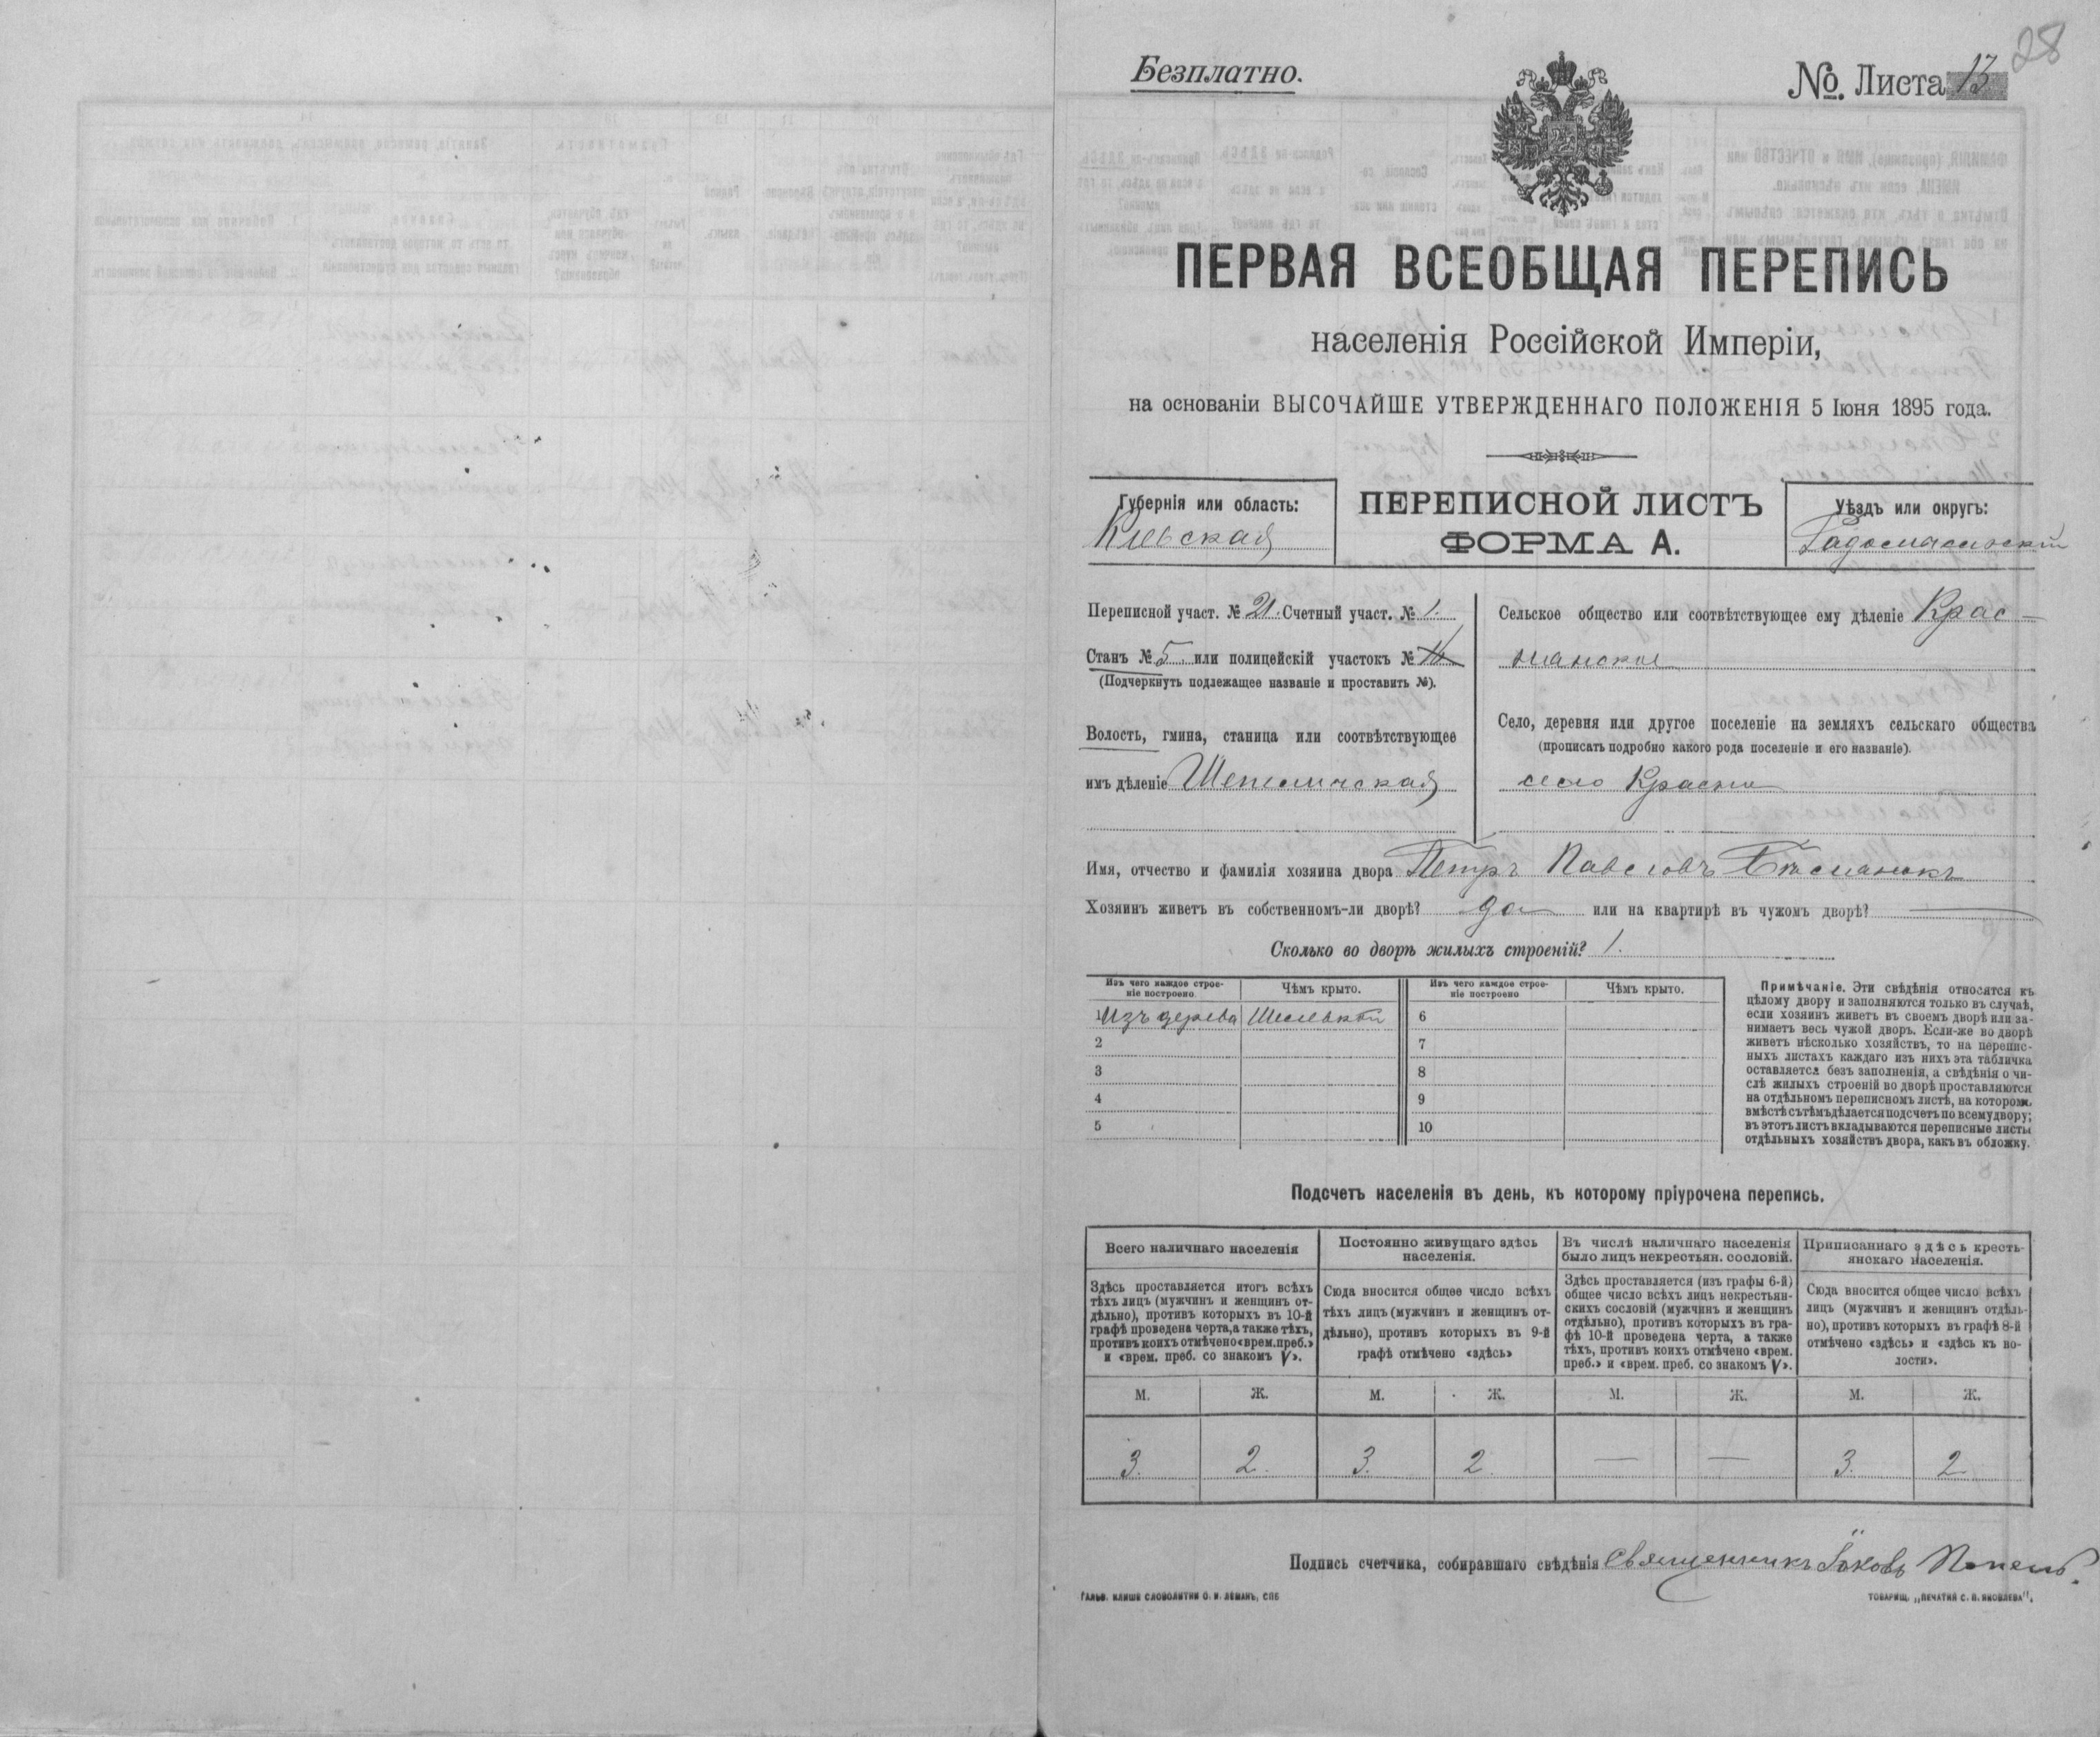 28
Безплатно.
№. Листа 13
ПЕРВАЯ ВСЕОБЩАЯ ПЕРЕПИСЬ
населенія Россійской Имперіи,
на основаніи ВЫСОЧАЙШЕ УТВЕРЖДЕННАГО ПОЛОЖЕНІЯ 5 Іюня 1895 года.
Губернія или область:
Кіевская
ПЕРЕПИСНОЙ ЛИСТЪ
ФОРМА А.
Уѣздъ или округъ:
Радомысльскій
Переписной участ. № 21. Счетный участ. № 1.
Станъ № 5 или полицейскій участокъ №
(Подчеркнуть подлежащее названіе и проставить №).
Волость, гмина, станица или соотвѣтствующее
имъ дѣленіе Шепеличская
Сельское общество или соотвѣтствующее ему дѣленіе Крас-
нянское
Село, деревня или другое поселеніе на земляхъ сельскаго общества
(прописать подробно какого рода поселеніе и его названіе).
село Красно
Имя, отчество и фамилія хозяина двора Петръ Павловъ
Хозяинъ живетъ въ собственномъ-ли дворѣ? да или на квартирѣ въ чужомъ дворѣ? —
Сколько во дворѣ жилыхъ строеній? 1.
Изъ чего каждое строе-
ніе построено
Чѣмъ крыто.
Изъ чего каждое строе-
ніе построено
Чѣмъ крыто.
1 Изъ дерева
6
2
7
3
8
4
9
5
10
Примѣчаніе. Эти свѣдѣнія относятся къ
цѣлому двору и заполняются только въ случаѣ,
если хозяинъ живетъ въ своемъ дворѣ или за-
нимаетъ весь чужой дворъ. Если-же во дворѣ
живетъ нѣсколько хозяйствъ, то на перепис-
ныхъ листахъ каждаго изъ нихъ эта табличка
оставляется безъ заполненія, а свѣдѣнія о чи-
слѣ жилыхъ строеній во дворѣ проставляются
на отдѣльномъ переписномъ листѣ, на которомъ
вмѣстѣ съ тѣмъ дѣлается подсчетъ по всему двору;
въ этотъ листъ вкладываются переписные листы
отдѣльныхъ хозяйствъ двора, какъ въ обложку.
Подсчетъ населенія въ день, къ которому пріурочена перепись.
Всего наличнаго населенія
Здѣсь проставляется итогъ всѣхъ
тѣхъ лицъ (мужчинъ и женщинъ от-
дѣльно), противъ которыхъ въ 10-й
графѣ проведена черта, а также тѣхъ,
противъ коихъ отмѣчено «врем. преб.»
и «врем. преб. со знакомъ V».
Постоянно живущаго здѣсь
населенія.
Сюда вносится общее число всѣхъ
тѣхъ лицъ (мужчинъ и женщинъ от-
дѣльно), противъ которыхъ въ 9-й
графѣ отмѣчено «здѣсь»
Въ числѣ наличнаго населенія
было лицъ некрестьян. сословій.
Здѣсь проставляется (изъ графы 6-й)
общее число всѣхъ лицъ некрестьян-
скихъ сословій (мужчинъ и женщинъ
отдѣльно), противъ которыхъ въ гра-
фѣ 10-й проведена черта, а также
тѣхъ, противъ коихъ отмѣчено «врем.
преб.» и «врем. преб. со знакомъ V».
Приписаннаго здѣсь кресть-
янскаго населенія.
Сюда вносится общее число всѣхъ
лицъ (мужчинъ и женщинъ отдѣль-
но), противъ которыхъ въ графѣ 8-й
отмѣчено «здѣсь» и «здѣсь къ во-
лости».
М. Ж. М. Ж. М. Ж. М. Ж.
3. 2. 3. 2. — — 3. 2
Подпись счетчика, собиравшаго свѣдѣнія Священникъ Іаковъ
ГАЛЬВ. КЛИШЕ СЛОВОЛИТНИ О. И. ЛЕМАНЪ, СПБ
ТОВАРИЩ. „ПЕЧАТНЯ С. П. ЯКОВЛЕВА".